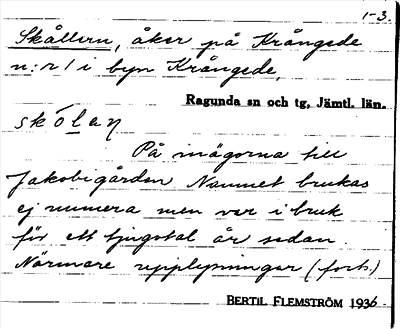 1-3.
Skållern, åker på Krångede
n:r 1 i byn Krångede,
Ragunda sn och tg, Jämtl. län.
skólaɳ
På inägorna till
Jakobigården Namnet brukas
ej numera men var i bruk
för ett tjugotal år sedan.
Närmare upplysningar (forts.)
BERTIL FLEMSTRÖM 1936.